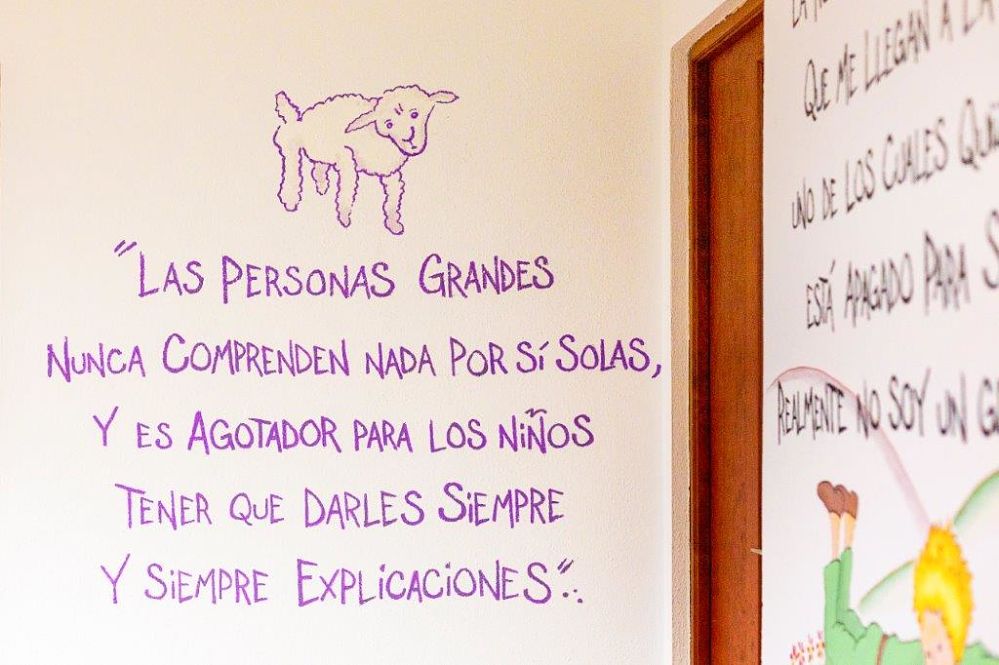 "LAS PERSONAS GRANDES
NUNCA COMPRENDEN NADA POR SÍ SOLAS,
Y ES AGOTADOR PARA LOS NIÑOS
TENER QUE DARLES SIEMPRE
Y SIEMPRE EXPLICACIONES".
LA
QUE ME LLEGAN A LA
UNO DE LOS CUALES
ESTÁ APAGADO PARA
REALMENTE NO SOY UN